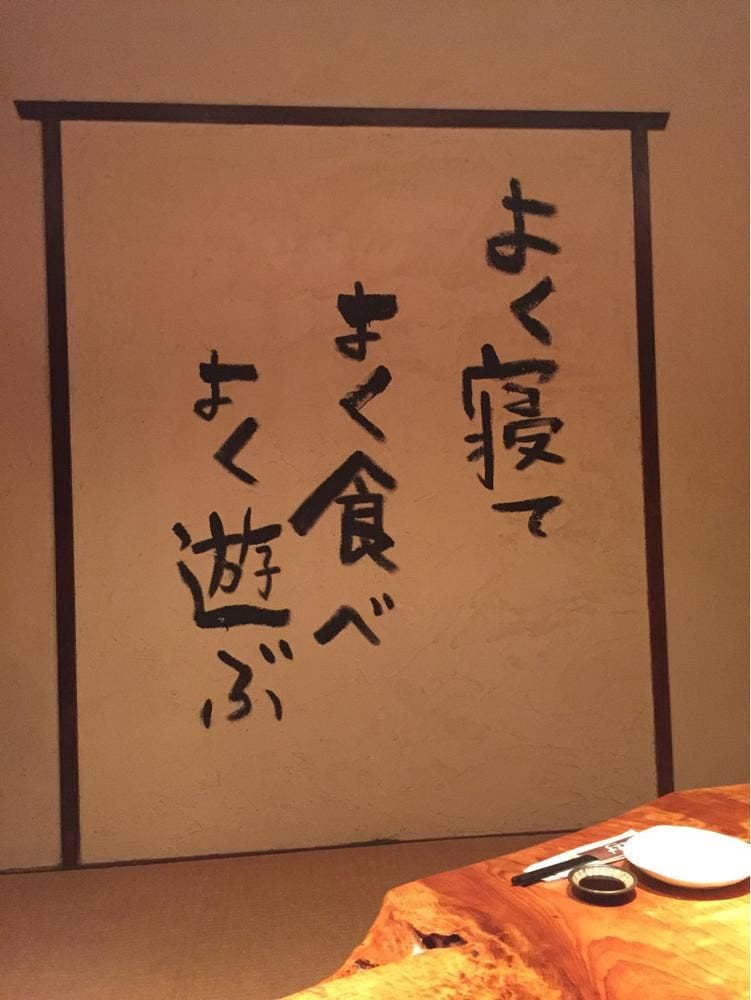 よく寝て
よく食べ
よく遊ぶ